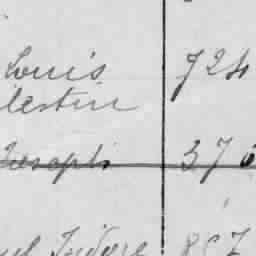 Louis 724
lestin
Joseph 376
Isidore 807